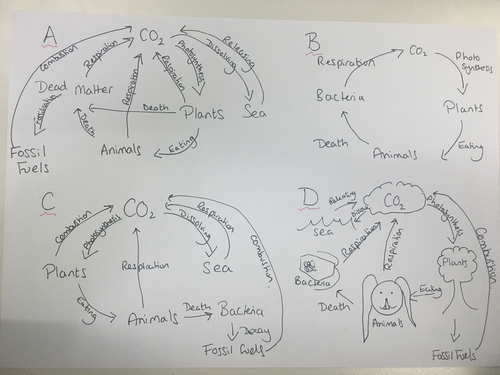 A
CO₂
Combustion
Respiration
Respiration
Respiration
Photosynthesis
Dissolving
Releasing
Dead Matter
Fossilisation
Death
Death
Plants
Sea
Fossil
Fuels
Animals
Eating
B
CO₂
Respiration
Photo
Synthesis
Bacteria
Plants
Death
Animals
Eating
C
CO₂
Combustion
Photosynthesis
Respiration
Dissolving
Combustion
Plants
Sea
Respiration
Eating
Animals
Death
Bacteria
Decay
Fossil fuels
D
CO₂
Releasing
Sea
Photosynthesis
Respiration
Respiration
Combustion
Plants
Bacteria
Eating
Death
Animals
Fossil Fuels